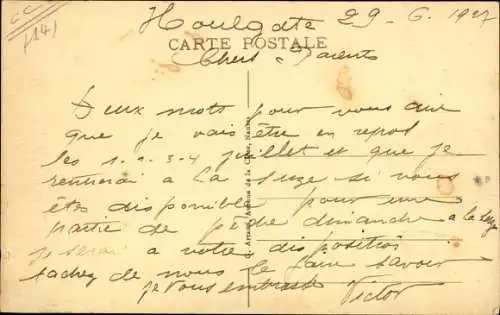 Houlgate 29-6.1927
CARTE POSTALE
Chers Parents
Deux mots pour vous dire
que je vais être en repos
les 1-2-3-4 juillet et que je
rentrerai à La Suze si vous
êtes disponible pour une
partie de pêche dimanche a la Suze
je serai a votre disposition
sachez de nous le faire savoir
je vous embrasse Victor